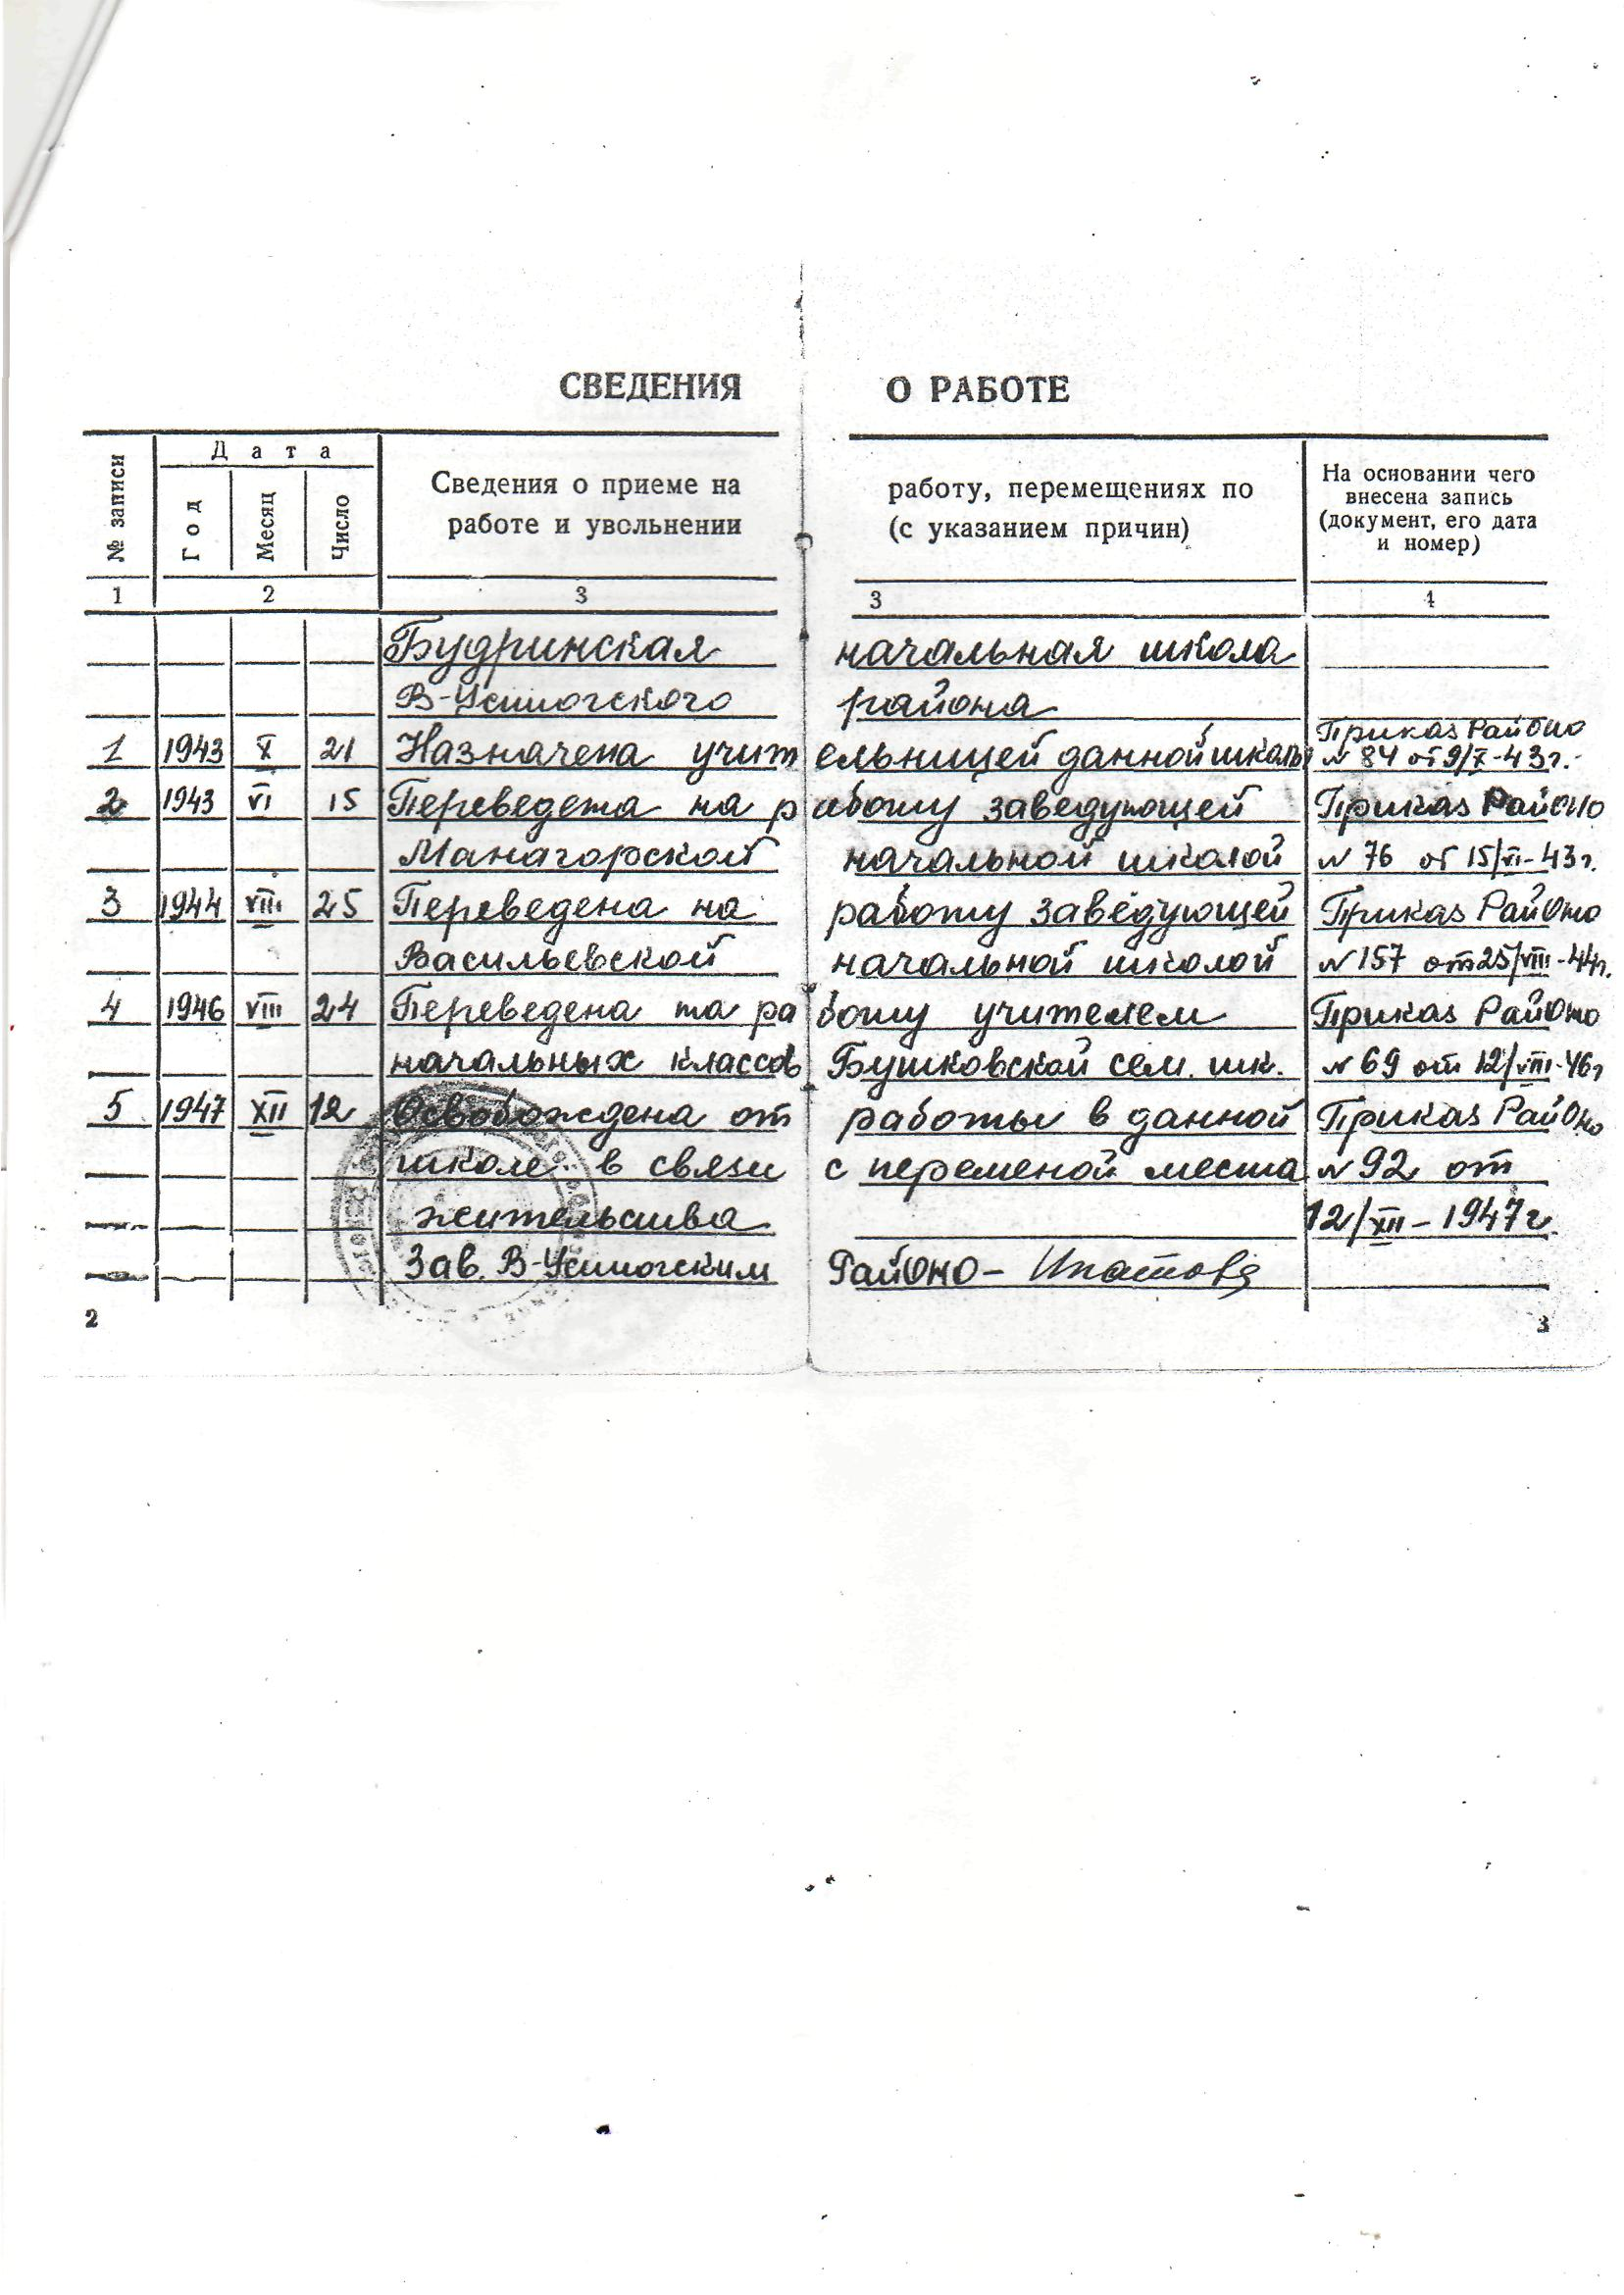 СВЕДЕНИЯ О РАБОТЕ
№ записи
Дата
Год
Месяц
Число
Сведения о приеме на работу, перемещениях по
работе и увольнении (с указанием причин)
На основании чего
внесена запись
(документ, его дата
и номер)
1 2 3 3 4
Будринская начальная школа
В-Устюгского района
Приказ РайОно
1 1943 X 21 Назначена учительницей данной школы № 84 от 9/X-43г.
2 1943 VI 15 Переведена на работу заведующей Приказ РайОно
Манагорской начальной школой № 76 от 15/VI-43г.
3 1944 VIII 25 Переведена на работу заведующей Приказ РайОно
Васильевской начальной школой № 157 от 25/VIII-44г.
4 1946 VIII 24 Переведена на работу учителем Приказ РайОно
начальных классов Бушковской сем. шк. № 69 от 12/VIII-46г
5 1947 XII 12 Освобождена от работы в данной Приказ РайОно
школе в связи с переменой места № 92 от
жительства 12/XII-1947г.
Зав. В-Устюгским РайОно - Ипатова
2 3